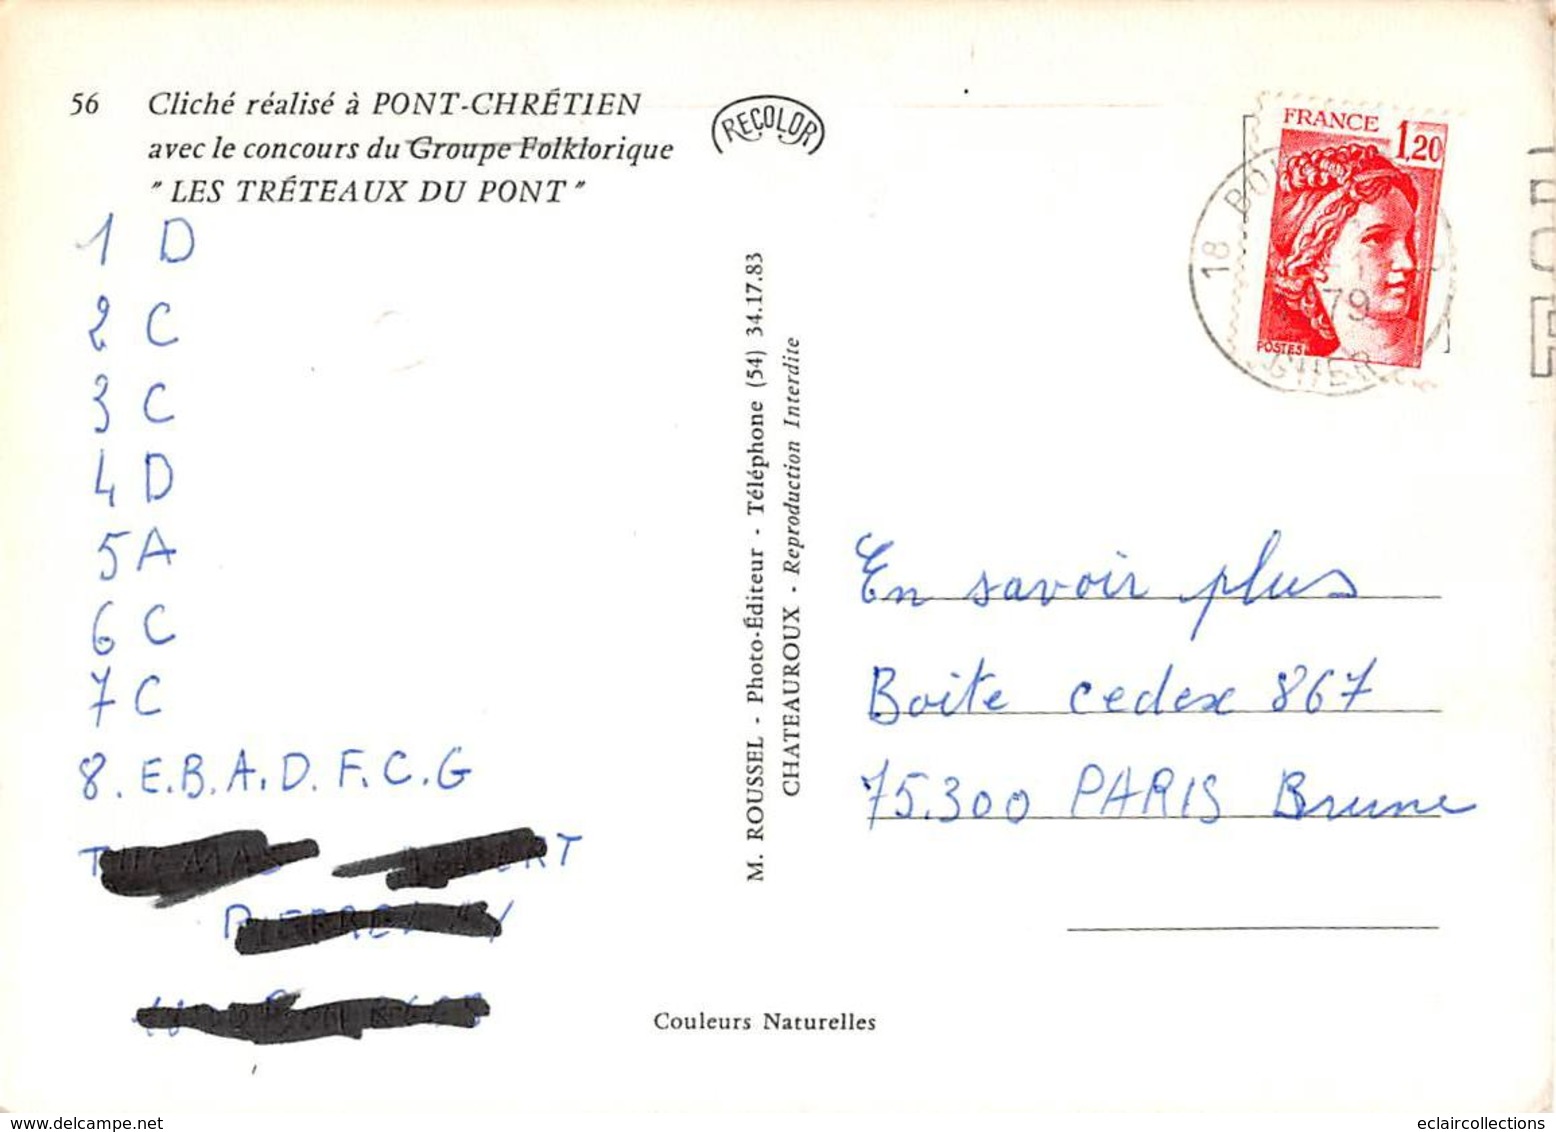 56 Cliché réalisé à PONT-CHRÉTIEN
avec le concours du Groupe Folklorique
" LES TRÉTEAUX DU PONT "
RECOLOR
1 D
2 C
3 C
4 D
5 A
6 C
7 C
8. E.B.A.D.F.C.G
M. ROUSSEL - Photo-Éditeur - Téléphone (54) 34.17.83
CHATEAUROUX - Reproduction Interdite
Couleurs Naturelles
FRANCE 1,20
POSTES
18
79
CHER
En savoir plus
Boite cedex 867
75.300 PARIS Brune
eclaircollections